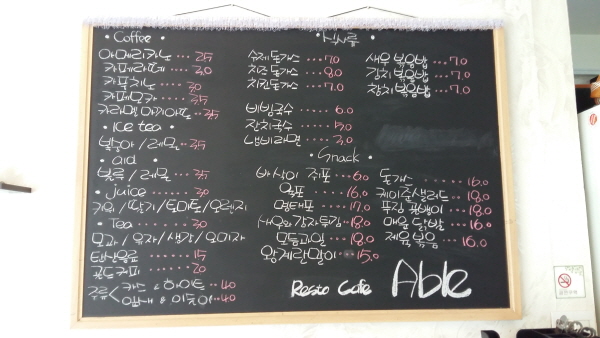 • Coffee •
아메리카노 ... 2.5
카페라떼 ... 3.0
카푸치노 ... 3.0
카페모카 ... 3.5
카라멜 마끼아또 ... 3.5
• Ice tea •
복숭아 / 레몬 ... 3.5
• aid •
블루 / 레몬 ... 3.5
• juice • ... 3.0
키위 / 딸기 / 토마토 / 오렌지
• Tea • ... 3.0
모과 / 유자 / 생강 / 오미자
탄산음료 ... 1.5
핸드커피 ... 2.0
주류 < 카스 & 하이트 ... 4.0
• 식사류 •
수제돈까스 ... 7.0
치즈돈까스 ... 8.0
치킨돈까스 ... 7.0
비빔국수 ... 6.0
잔치국수 ... 5.0
냄비라면 ... 3.0
새우볶음밥 ... 7.0
김치볶음밥 ... 7.0
참치볶음밥 ... 7.0
• Snack •
바삭이 쥐포 ... 6.0
육포 ... 16.0
명태포 ... 17.0
새우와감자튀김 ... 18.0
모듬과일 ... 18.0
왕계란말이 ... 15.0
돈까스 ... 16.0
케이준샐러드 ... 18.0
푸짐 골뱅이 ... 18.0
매운 닭발 ... 16.0
제육볶음 ... 16.0
Resto Cafe Able